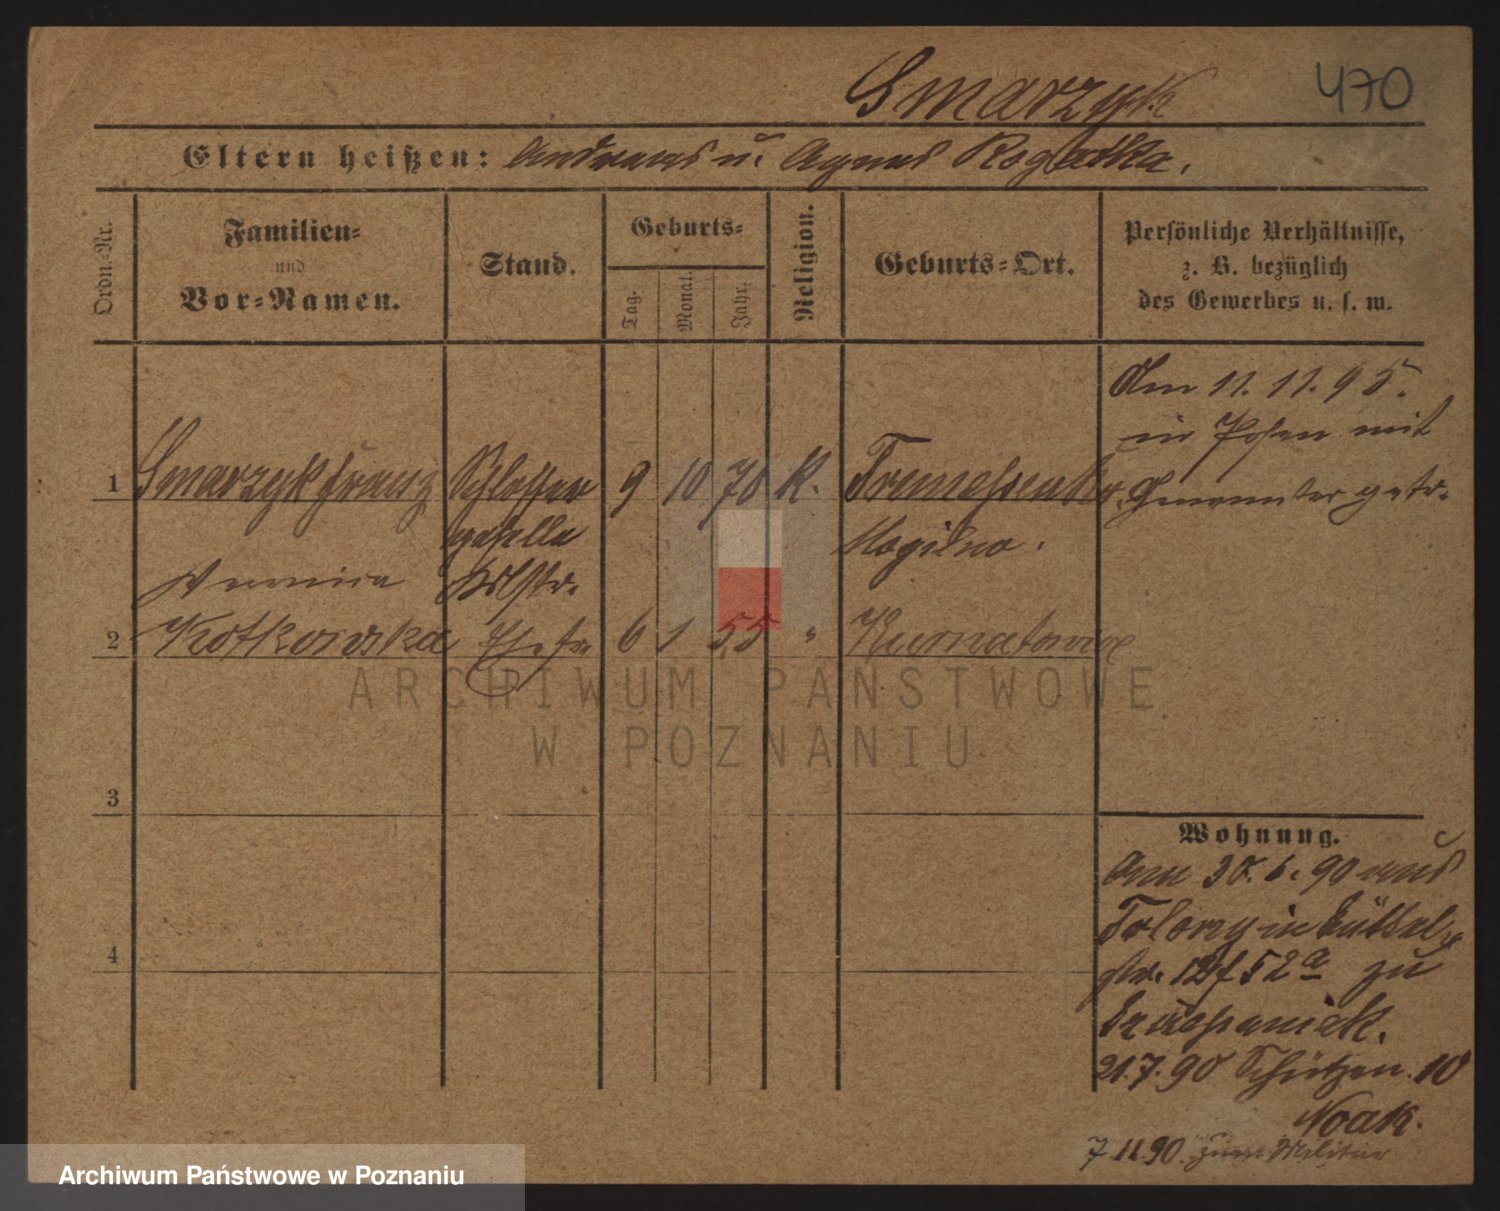 Smarzyk
470
Eltern heißen: Andreas u. Agnes Rogalska.
Ordn.-Nr.
Familien-
und
Vor-Namen.
Stand.
Geburts-
Tag.
Monat.
Jahr.
Religion.
Geburts-Ort.
Persönliche Verhältnisse,
z. B. bezüglich
des Gewerbes u. s. w.
Am 11.11.95.
in Posen mit
getr.
1 Smarzyk Franz Schlosser 9 10 70 K. Tremessen Kr.
geselle Mogilno.
Veronica
2 Kotkowska Ehefr 6 1 55 "
3
4
Wohnung.
Am 30.6.90 aus
in
str. 52a zu
21.7.90 Schützen. 10
Noak.
7.11.90. zum Militär
ARCHIWUM PAŃSTWOWE
W POZNANIU
Archiwum Państwowe w Poznaniu